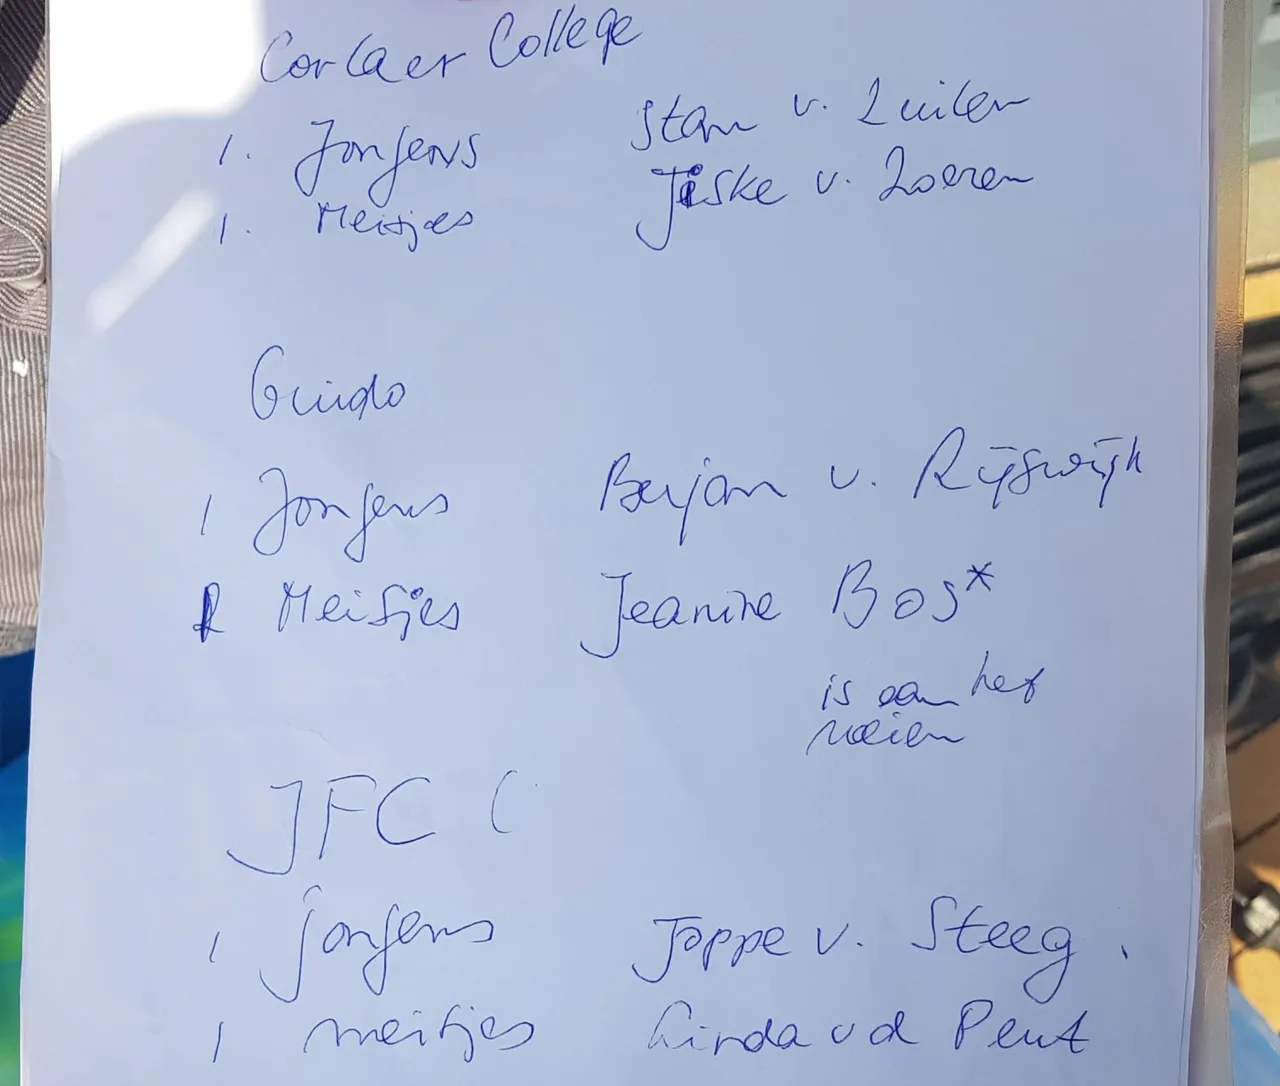 Corlaer College
1. Jongens Stam v. Zuilen
1. Meisjes Jiske v. Zoeren
Guido
1 Jongens Berjan v. Rijswijk
1 Meisjes Jeanine Bos*
is aan het
roeien
JFC (
1 jongens Joppe v. Steeg.
1 meisjes Linda vd Peut